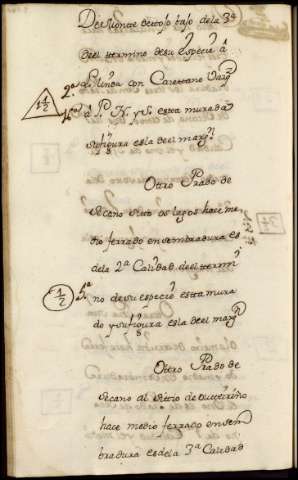 De Monte de tojo bajo de la 3ª
del termino de su Especie â
2ª L. linda con Caietano Varg
1½ â P. N. y S. esta murada
su figura es la del marg.
Otro Prado de
Secano sitto os lagos hace me
dio ferrado en sembradura es
de la 2ª Calidad del termi
½ 5ª no de su especie esta mura
do y su figura es la del marg
Otro Prado de
Secano al Sitio de outeiriño
hace medio ferrado en sem
bradura es de la 3ª Calidad